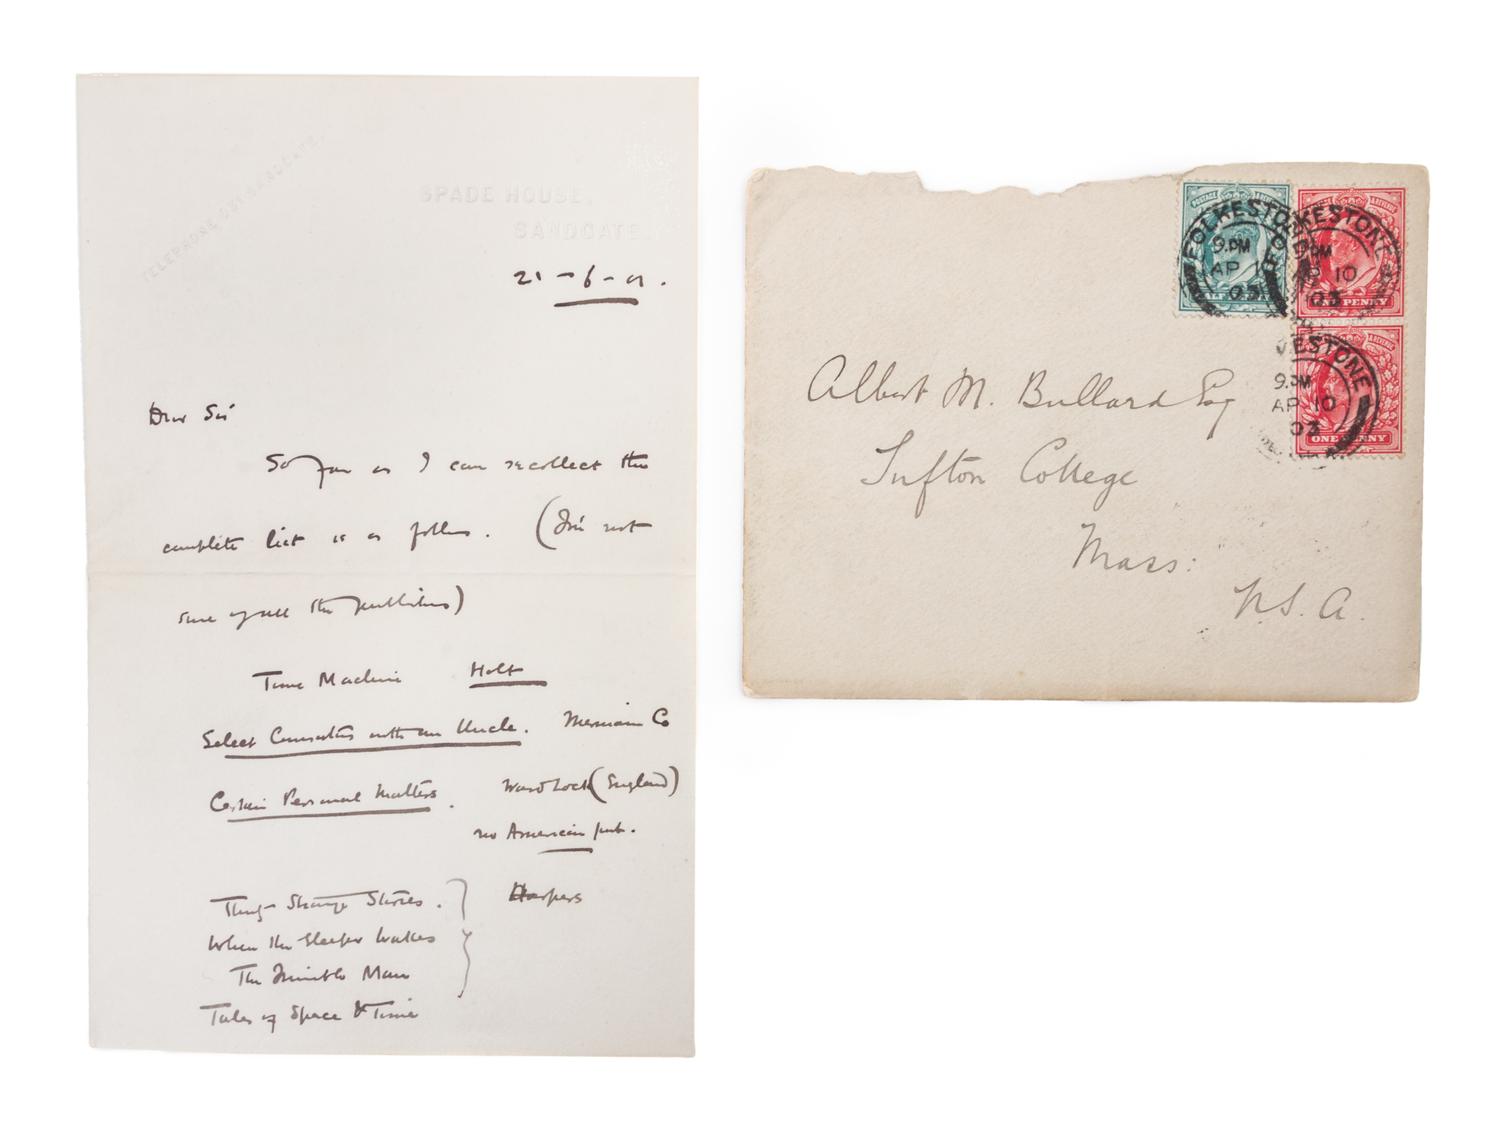 TELEPHONE SANDGATE.
SPADE HOUSE,
SANDGATE.
21-6-01.
Dear Sir
So far as I can recollect the
complete list is as follows. (I'm not
sure of all the publishers)
Time Machine Holt
Select Conversations with an Uncle. Merriam Co
Certain Personal Matters. Ward Lock (England)
no American pub.
Thirty Strange Stories. Harpers
When the Sleeper Wakes
The Invisible Man
Tales of Space & Time
Albert M. Bullard Esq
Tufton College
Mass:
U.S.A.
POSTAGE & REVENUE
FOLKESTONE
9.PM
AP 10
03
FOLKESTONE
9.PM
AP 10
03
ONE PENNY
KESTONE
9.PM
AP 10
03
ONE PENNY